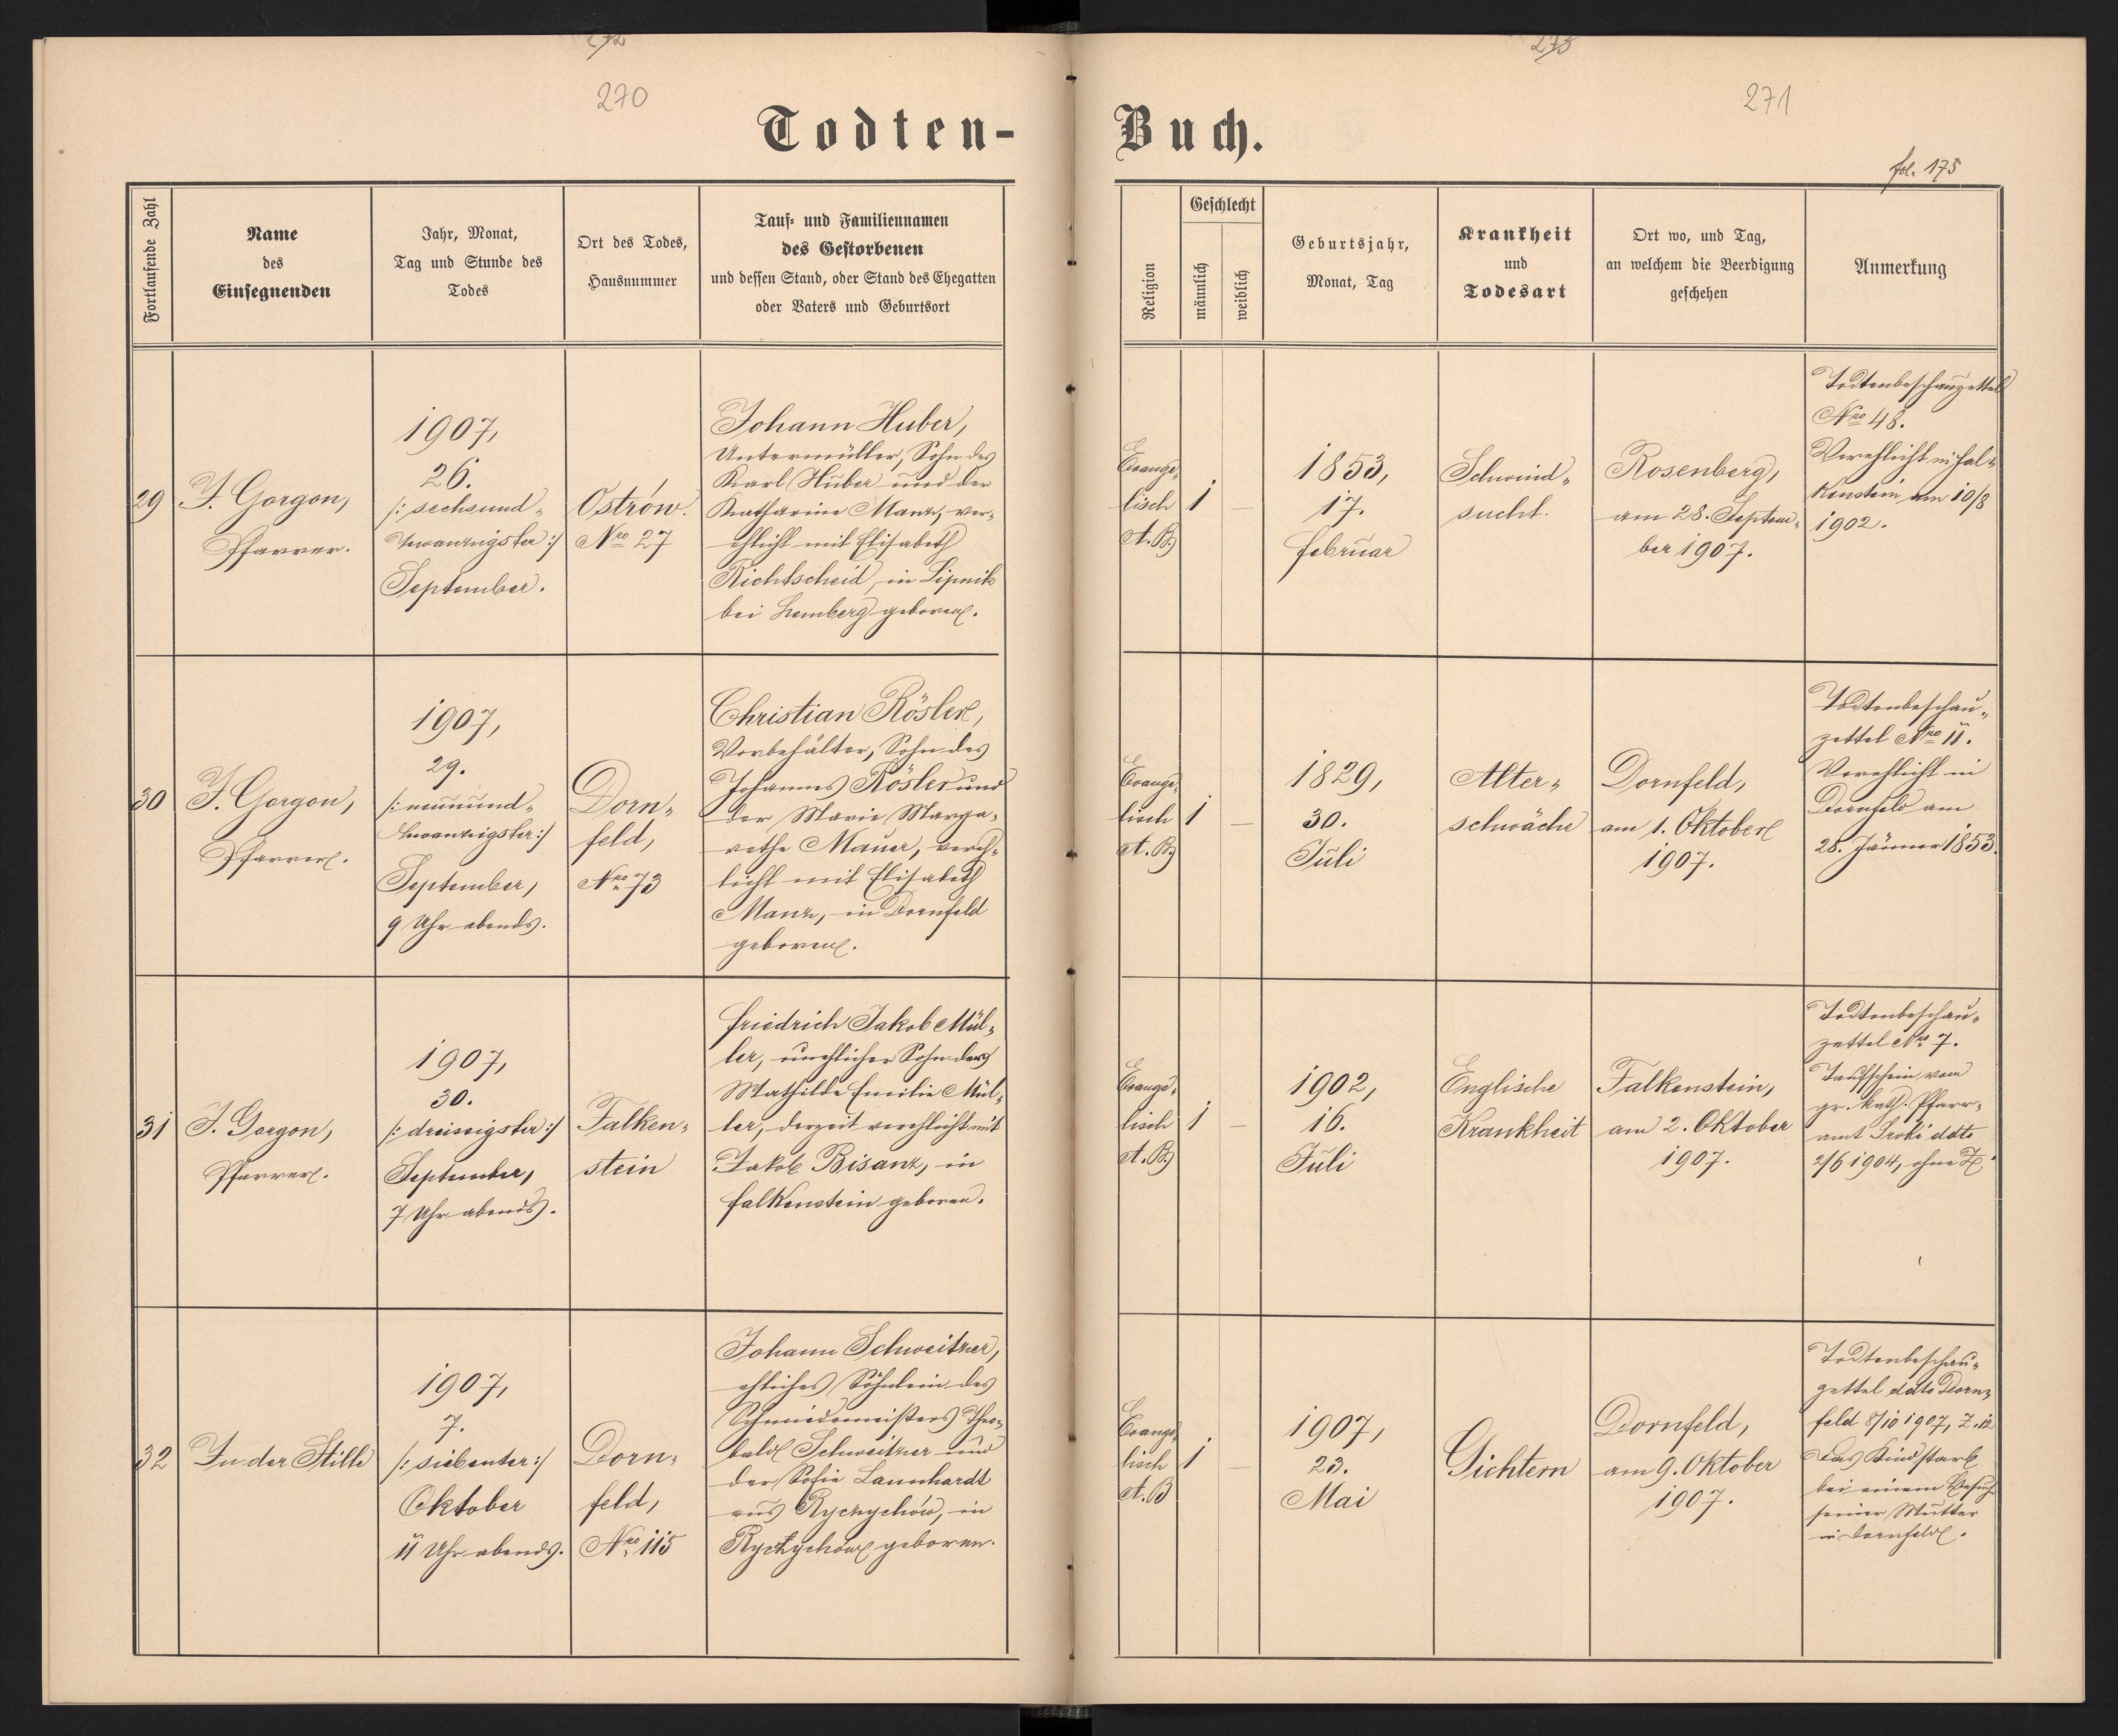 272
273
270
271
Todten-
Buch.
fol. 175
Fortlaufende Zahl
Name
des
Einsegnenden
Jahr, Monat,
Tag und Stunde des
Todes
Ort des Todes,
Hausnummer
Tauf- und Familiennamen
des Gestorbenen
und dessen Stand, oder Stand des Ehegatten
oder Vaters und Geburtsort
Religion
Geschlecht
männlich
weiblich
Geburtsjahr,
Monat, Tag
Krankheit
und
Todesart
Ort wo, und Tag,
an welchem die Beerdigung
geschehen
Anmerkung
29
J. Gorgon,
Pfarrer.
1907,
26.
/: sechsund-
zwanzigster :/
September.
Ostrów.
Nro 27
Johann Huber,
Untermüller, Sohn des
Karl Huber und der
Katharine Manz, ver-
ehlicht mit Elisabeth
Richtscheid, in Lipnik
bei Lemberg geboren.
Evange-
lisch
A. B.
1
—
1853,
17.
Februar
Schwind-
sucht.
Rosenberg,
am 28. Septem-
ber 1907.
Todtenbeschauzettel
Nro 48.
Verehlicht in Fal-
kenstein am 10/8
1902.
30
J. Gorgon,
Pfarrer.
1907,
29.
/: neunund-
zwanzigster :/
September,
9 Uhr abends.
Dorn-
feld,
Nro 73
Christian Rösler,
Vorbehälter, Sohn des
Johannes Rösler und
der Marie Marga-
rethe Mauer, vereh-
licht mit Elisabeth
Manz, in Dornfeld
geboren.
Evange-
lisch
A. B.
1
—
1829,
30.
Juli
Alter-
schwäche
Dornfeld,
am 1. Oktober
1907.
Todtenbeschau-
zettel Nro 11.
Verehlicht in
Dornfeld am
28. Jänner 1853.
31
J. Gorgon,
Pfarrer.
1907,
30.
/: dreissigster :/
September,
7 Uhr abends.
Falken-
stein
Friedrich Jakob Mül-
ler, unehlicher Sohn der
Mathilde Emilie Mül-
ler, derzeit verehlicht mit
Jakob Bisanz, in
Falkenstein geboren.
Evange-
lisch
A. B.
1
—
1902,
16.
Juli
Englische
Krankheit
Falkenstein,
am 2. Oktober
1907.
Todtenbeschau-
zettel Nro 7.
Taufschein vom
gr. kath. Pfarr-
amt Sroki ddto
2/6 1904, ohne Z.
32
In der Stille
1907,
7.
/: siebenter :/
Oktober
11 Uhr abends.
Dorn-
feld,
Nro 115
Johann Schweitzer,
ehliches Söhnlein des
Schmiedemeisters Theo-
bald Schweitzer und
der Sofie Launhardt
aus Rychychów, in
Rychychów geboren.
Evange-
lisch
A. B
1
—
1907,
23.
Mai
Gichtern
Dornfeld,
am 9. Oktober
1907.
Todtenbeschau-
zettel ddto Dorn-
feld 8/10 1907, Z. 12
Das Kind starb
bei einem Besuch
seiner Mutter
in Dornfeld.